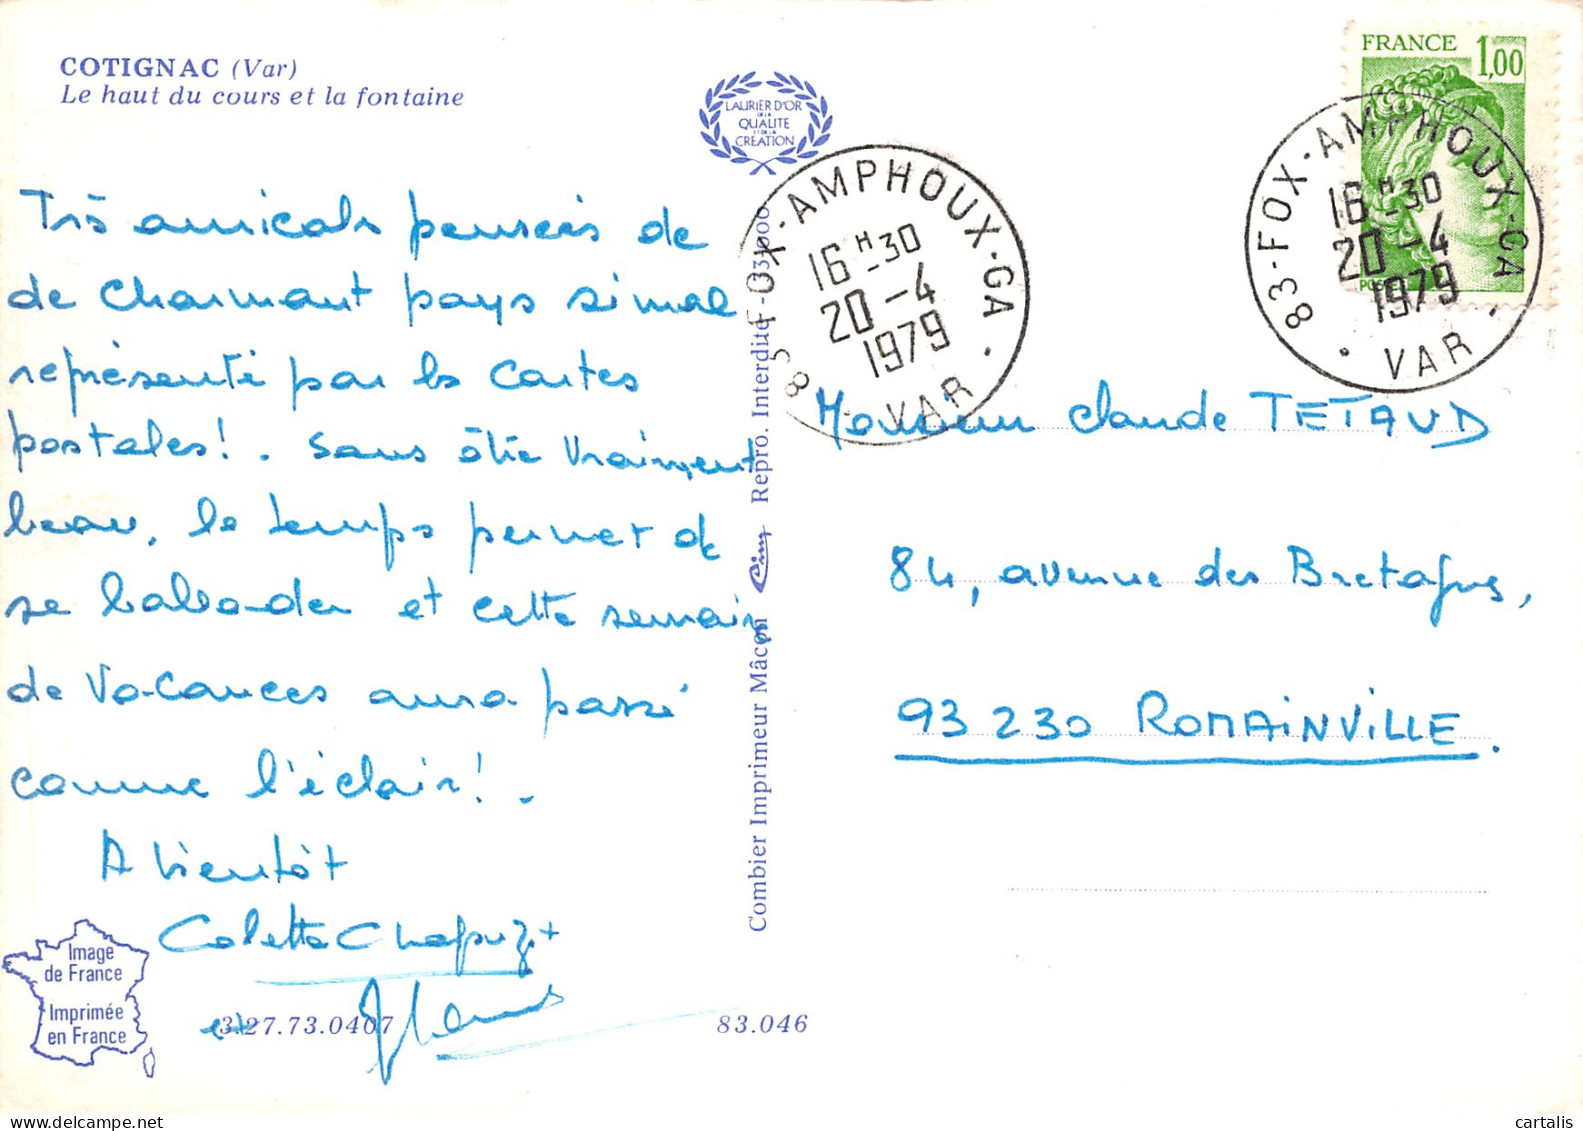 COTIGNAC (Var)
Le haut du cours et la fontaine
LAURIER D'OR
DE LA
QUALITE
ET DE LA
CREATION
FRANCE 1,00
POSTES
83-FOX-AMPHOUX-GA
16H-30
20-4
1979
VAR
83-FOX-AMPHOUX-GA
16H-30
20-4
1979
VAR
Très amicales pensées de
de charmant pays si mal
représenté par les cartes
postales!. Sans être vraiment
beau, le temps permet de
se balader et cette semaine
de vacances aura passé
comme l'éclair!.
A bientôt
Colette
et
Monsieur Claude TETAUD
84, avenue des Bretagnes,
93230 ROMAINVILLE.
Combier Imprimeur Mâcon Cim Repro. Interdite
Image
de France
Imprimée
en France
3.27.73.0407
83.046
cartalis
www.delcampe.net